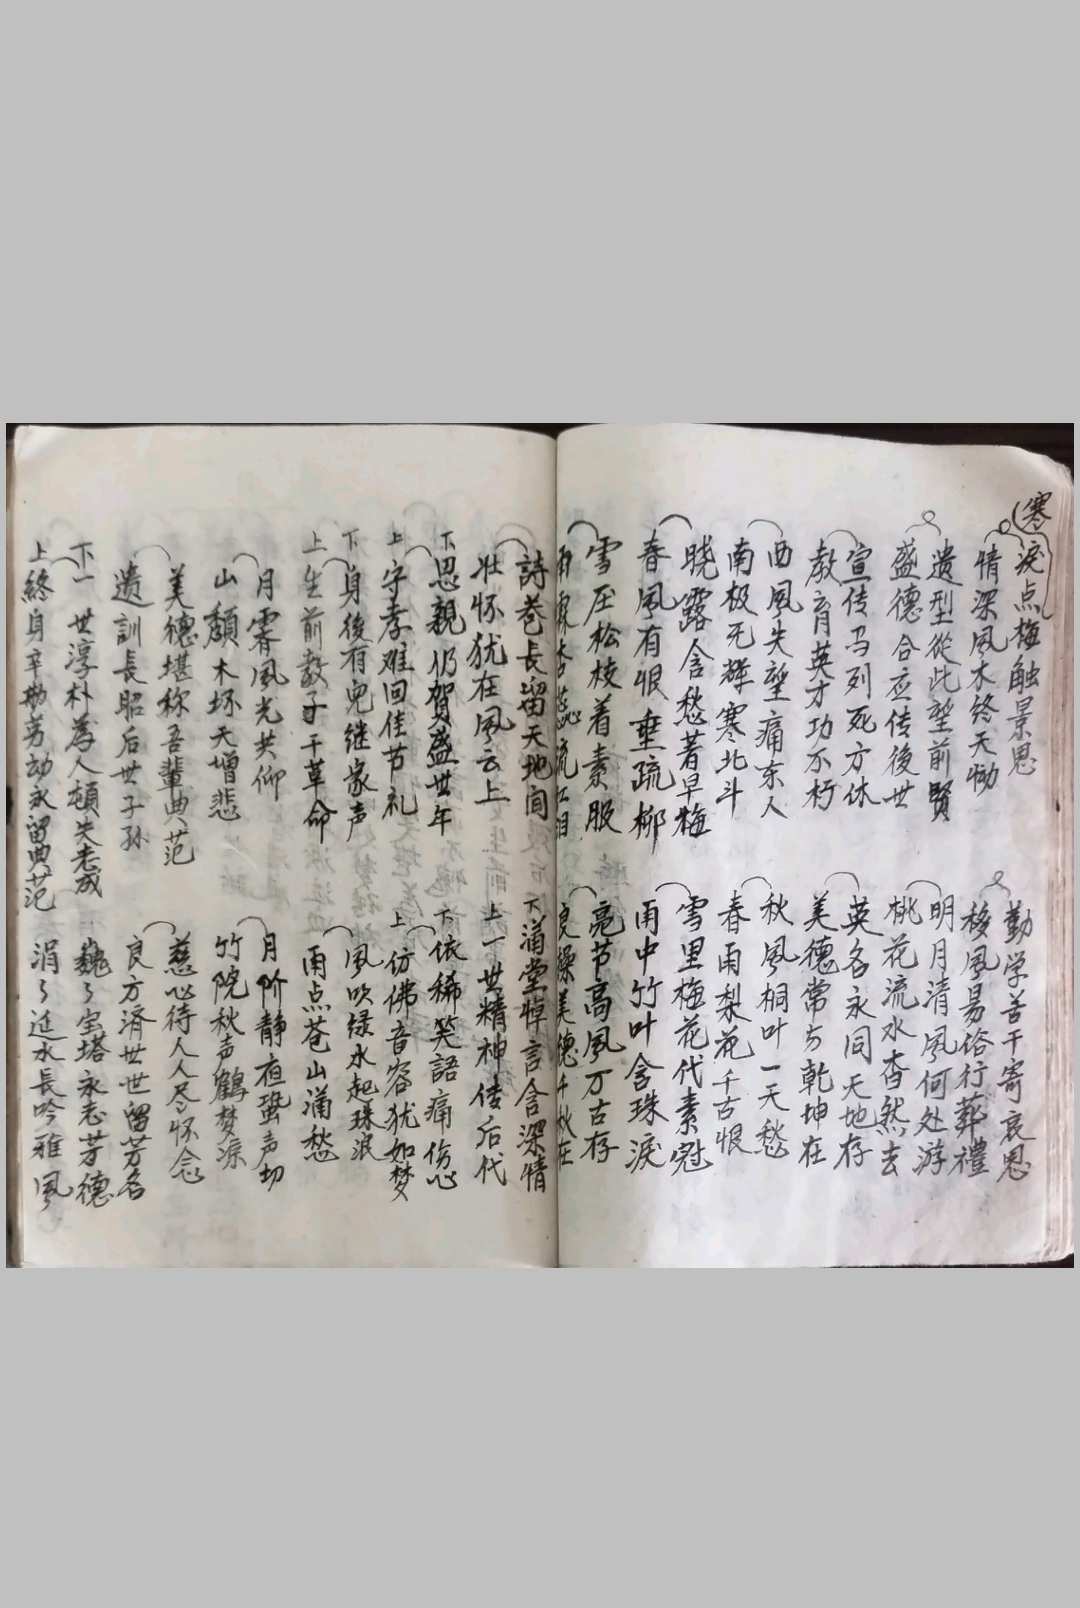 寒
淚点梅触景思
情深風木终天恸
遗型從此望前賢
盛德合应传後世
宣传马列死方休
教育英才功不朽
西風失望痛东人
南极无辉寒北斗
晓露含愁著早梅
春風有恨垂疏柳
雪压松枝着素服
流红泪
勤学苦干寄哀思
移風易俗行葬禮
明月清風何处游
桃花流水杳然去
英名永同天地存
美德常与乾坤在
秋風桐叶一天愁
春雨梨花千古恨
雪里梅花代素冠
雨中竹叶含珠淚
亮节高風万古存
良操美德千秋在
詩卷长留天地间
壮怀犹在風云上
下 思親仍賀盛世年
上 守孝难回佳节礼
下 身後有兒继家声
上 生前教子干革命
月霽風光共仰
山颓木坏天增悲
美德堪称吾輩典范
遗訓長昭后世子孙
下 一世淳朴為人頓失老成
上 終身辛勤劳动永留典范
下 满堂悼言含深情
上 一世精神传后代
下 依稀笑語痛伤心
上 仿佛音容犹如梦
風吹绿水起珠浪
雨点苍山满愁
月阶静夜蛩声切
竹院秋声鶴梦凉
慈心待人人尽怀念
良方濟世世留芳名
巍々宝塔永志芳德
涓々延水長吟雅風